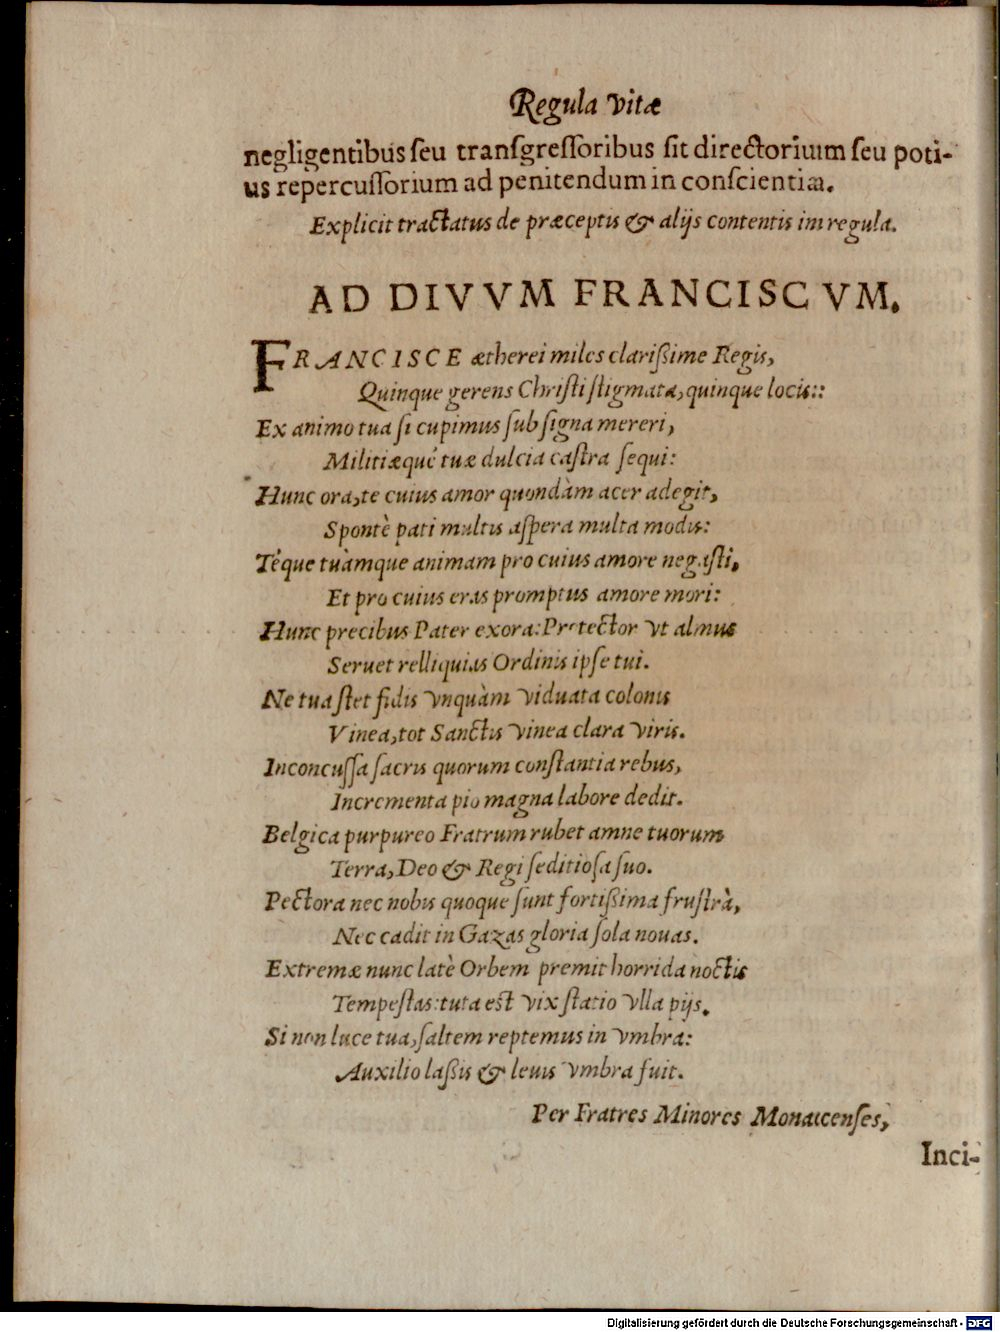 Regula vitæ
negligentibus seu transgressoribus sit directorium seu poti-
us repercussorium ad penitendum in conscientia.
Explicit tractatus de præceptis & alijs contentis im regula.
AD DIVVM FRANCISCVM.
FRANCISCE ætherei miles clarißime Regis,
Quinque gerens Christi stigmata, quinque locis::
Ex animo tua si cupimus sub signa mereri,
Militiæqué tuæ dulcia castra sequi:
Hunc ora, te cuius amor quondàm acer adegit,
Spontè pati multis aspera multa modis:
Téque tuàmque animam pro cuius amore negasti,
Et pro cuius eras promptus amore mori:
Hunc precibus Pater exora: Protector vt almus
Seruet relliquias Ordinis ipse tui.
Ne tua stet fidis vnquàm viduata colonis
Vinea, tot Sanctis vinea clara viris.
Inconcussa sacris quorum constantia rebus,
Incrementa pio magna labore dedit.
Belgica purpureo Fratrum rubet amne tuorum
Terra, Deo & Regi seditiosa suo.
Pectora nec nobis quoque sunt fortißima frustrà,
Nec cadit in Gazas gloria sola nouas.
Extremæ nunc latè Orbem premit horrida noctis
Tempestas: tuta est vix statio vlla pijs.
Si non luce tua, saltem reptemus in vmbra:
Auxilio laßis & leuis vmbra fuit.
Per Fratres Minores Monacenses,
Inci-
Digitalisierung gefördert durch die Deutsche Forschungsgemeinschaft - DFG